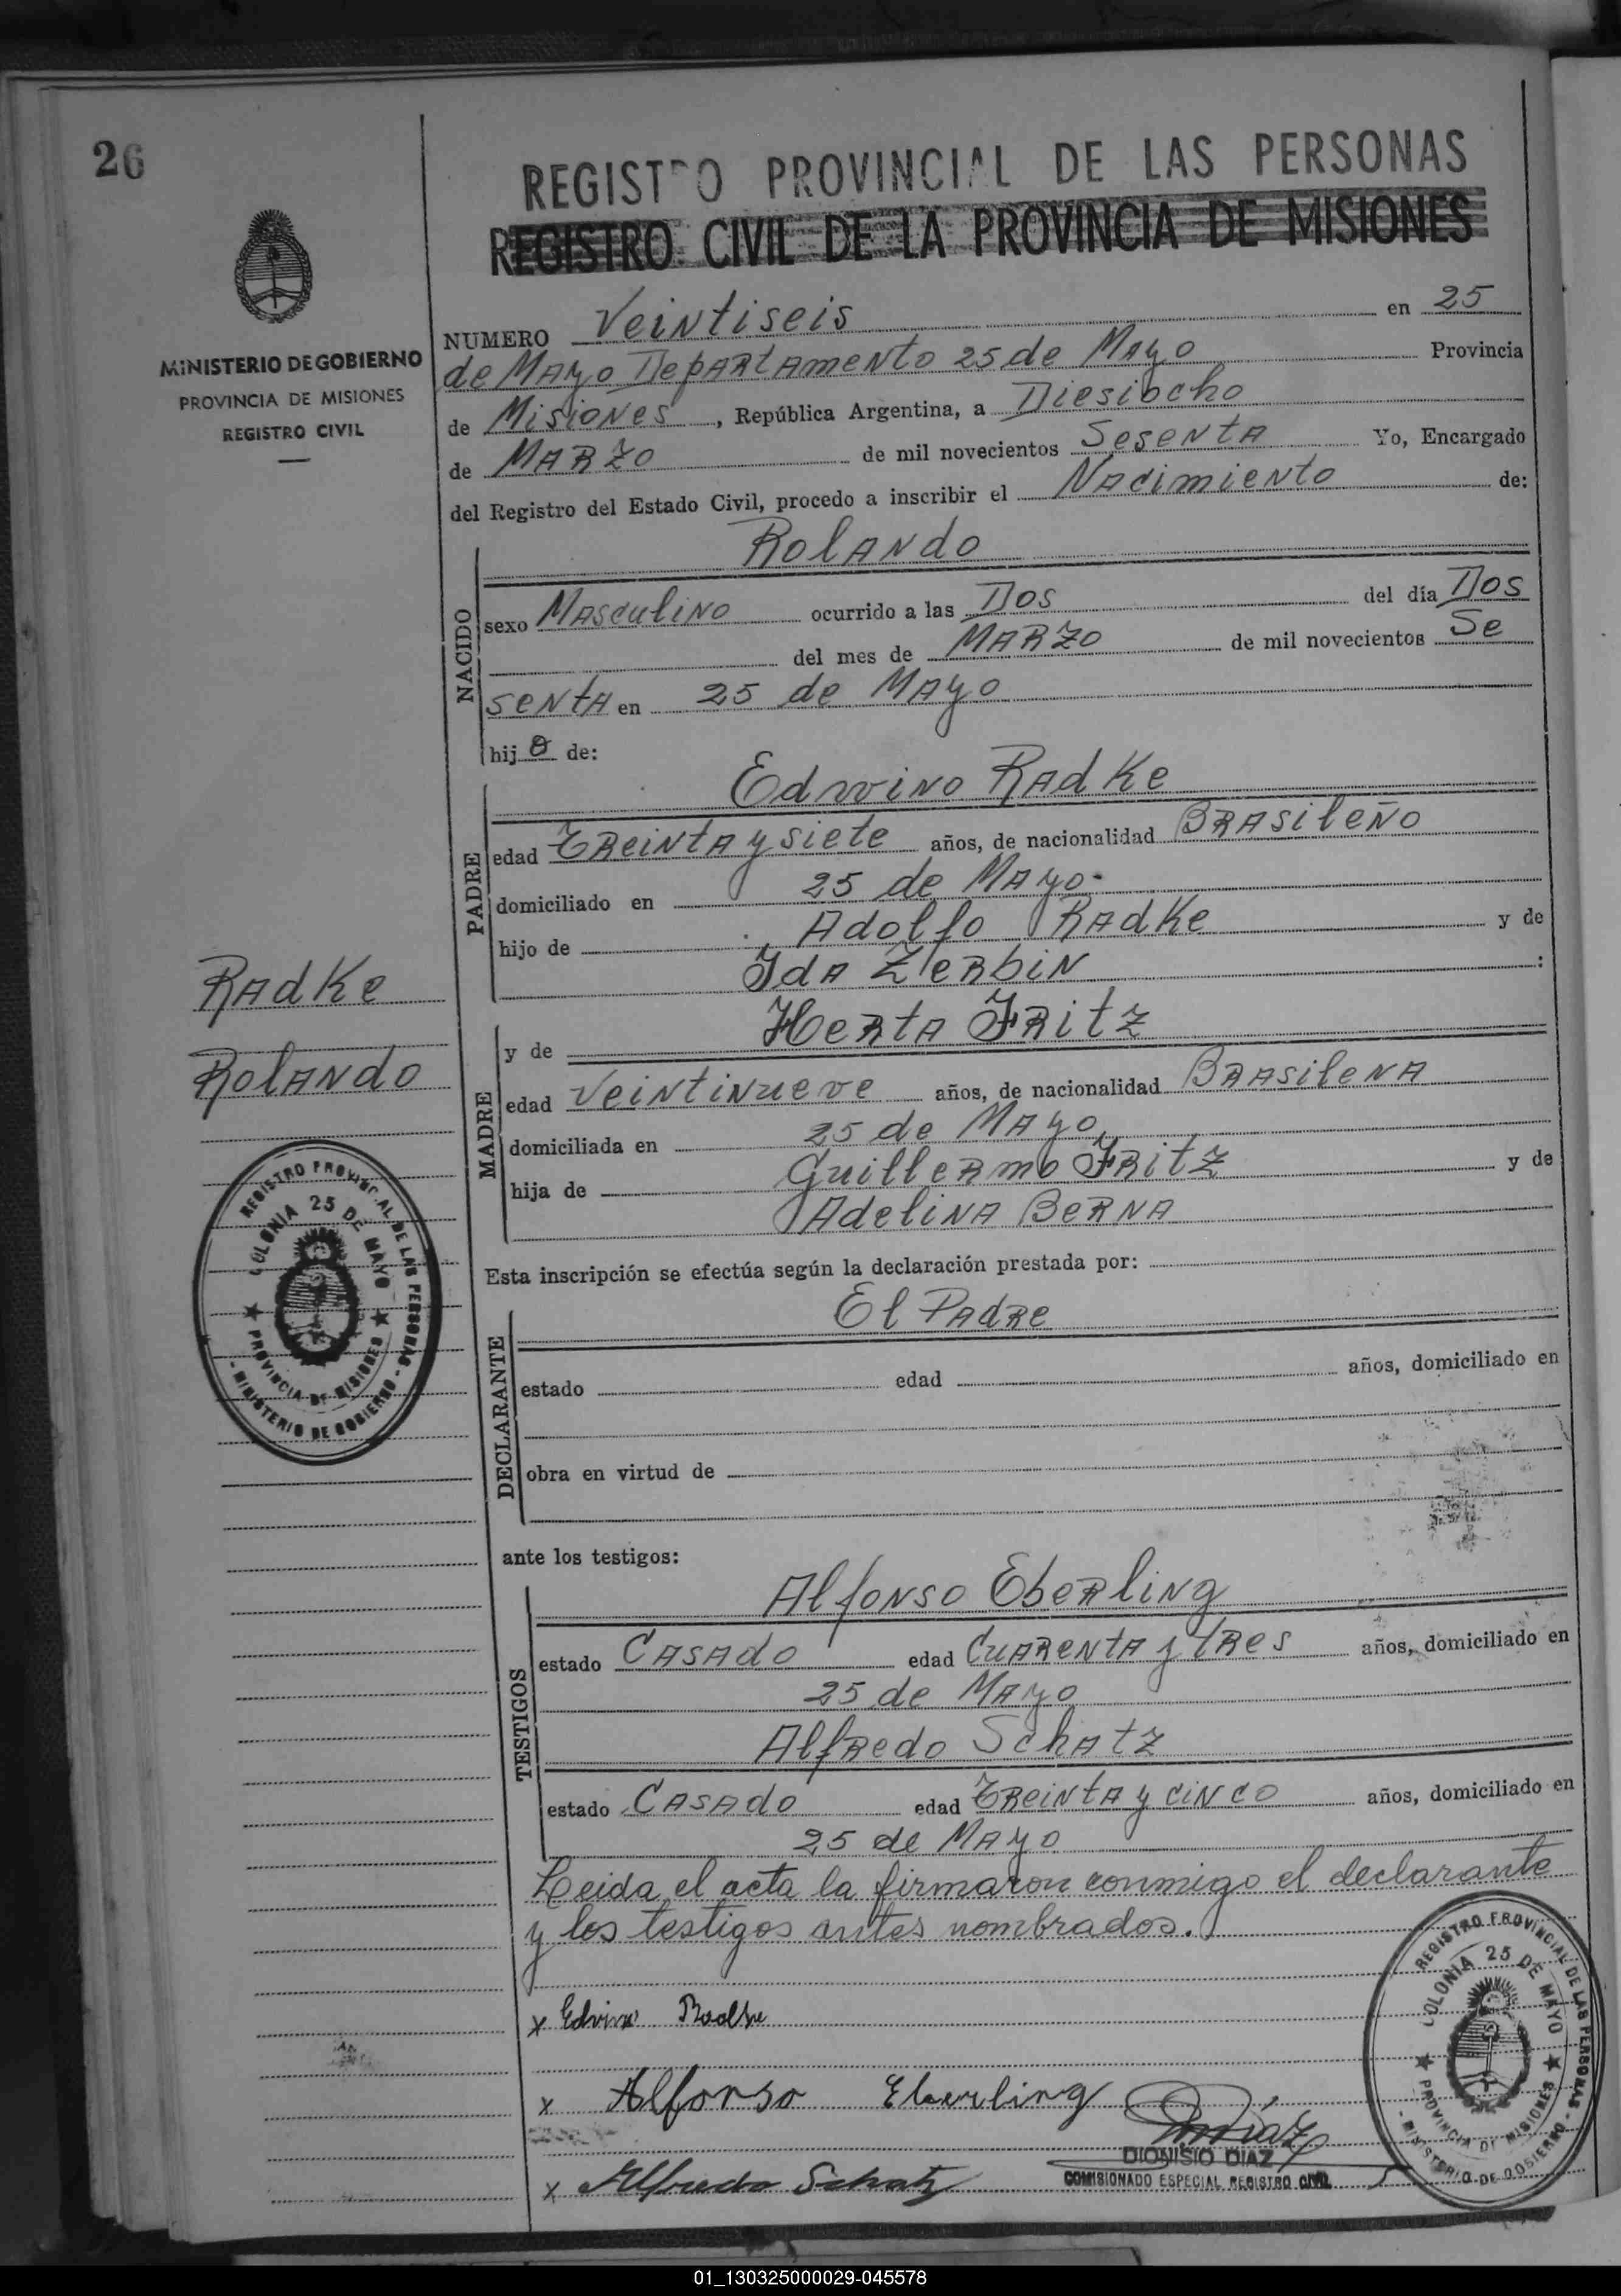 26
REGISTRO PROVINCIAL DE LAS PERSONAS
REGISTRO CIVIL DE LA PROVINCIA DE MISIONES
MINISTERIO DE GOBIERNO
PROVINCIA DE MISIONES
REGISTRO CIVIL
NUMERO Veintiseis en 25
de Mayo Departamento 25 de Mayo Provincia
de Misiones, República Argentina, a Diesiocho
de Marzo de mil novecientos Sesenta Yo, Encargado
del Registro del Estado Civil, procedo a inscribir el Nacimiento de:
NACIDO
Rolando
sexo Masculino ocurrido a las Dos del día Dos
del mes de Marzo de mil novecientos Se
senta en 25 de Mayo
hijo de:
PADRE
Edwino Radke
edad Treinta y siete años, de nacionalidad Brasileño
domiciliado en 25 de Mayo
hijo de Adolfo Radke y de
Ida Zerbin :
Radke
Rolando
MADRE
y de Herta Fritz
edad Veintinueve años, de nacionalidad Brasilena
domiciliada en 25 de Mayo
hija de Guillermo Fritz y de
Adelina Berna
REGISTRO PROVINCIAL DE LAS PERSONAS - MINISTERIO DE GOBIERNO -
COLONIA 25 DE MAYO ★ PROVINCIA DE MISIONES ★
Esta inscripción se efectúa según la declaración prestada por:
DECLARANTE
El Padre
estado edad años, domiciliado en
obra en virtud de
ante los testigos:
TESTIGOS
Alfonso Eberling
estado Casado edad Cuarenta y tres años, domiciliado en
25 de Mayo
Alfredo Schatz
estado Casado edad Treinta y cinco años, domiciliado en
25 de Mayo
Leida el acta la firmaron conmigo el declarante
y los testigos antes nombrados.
x Edvino Radke
x Alfonso Eberling
Diaz
DIONISIO DIAZ
COMISIONADO ESPECIAL REGISTRO CIVIL
x Alfredo Schatz
REGISTRO PROVINCIAL DE LAS PERSONAS - MINISTERIO DE GOBIERNO -
COLONIA 25 DE MAYO ★ PROVINCIA DE MISIONES ★
01_130325000029-045578